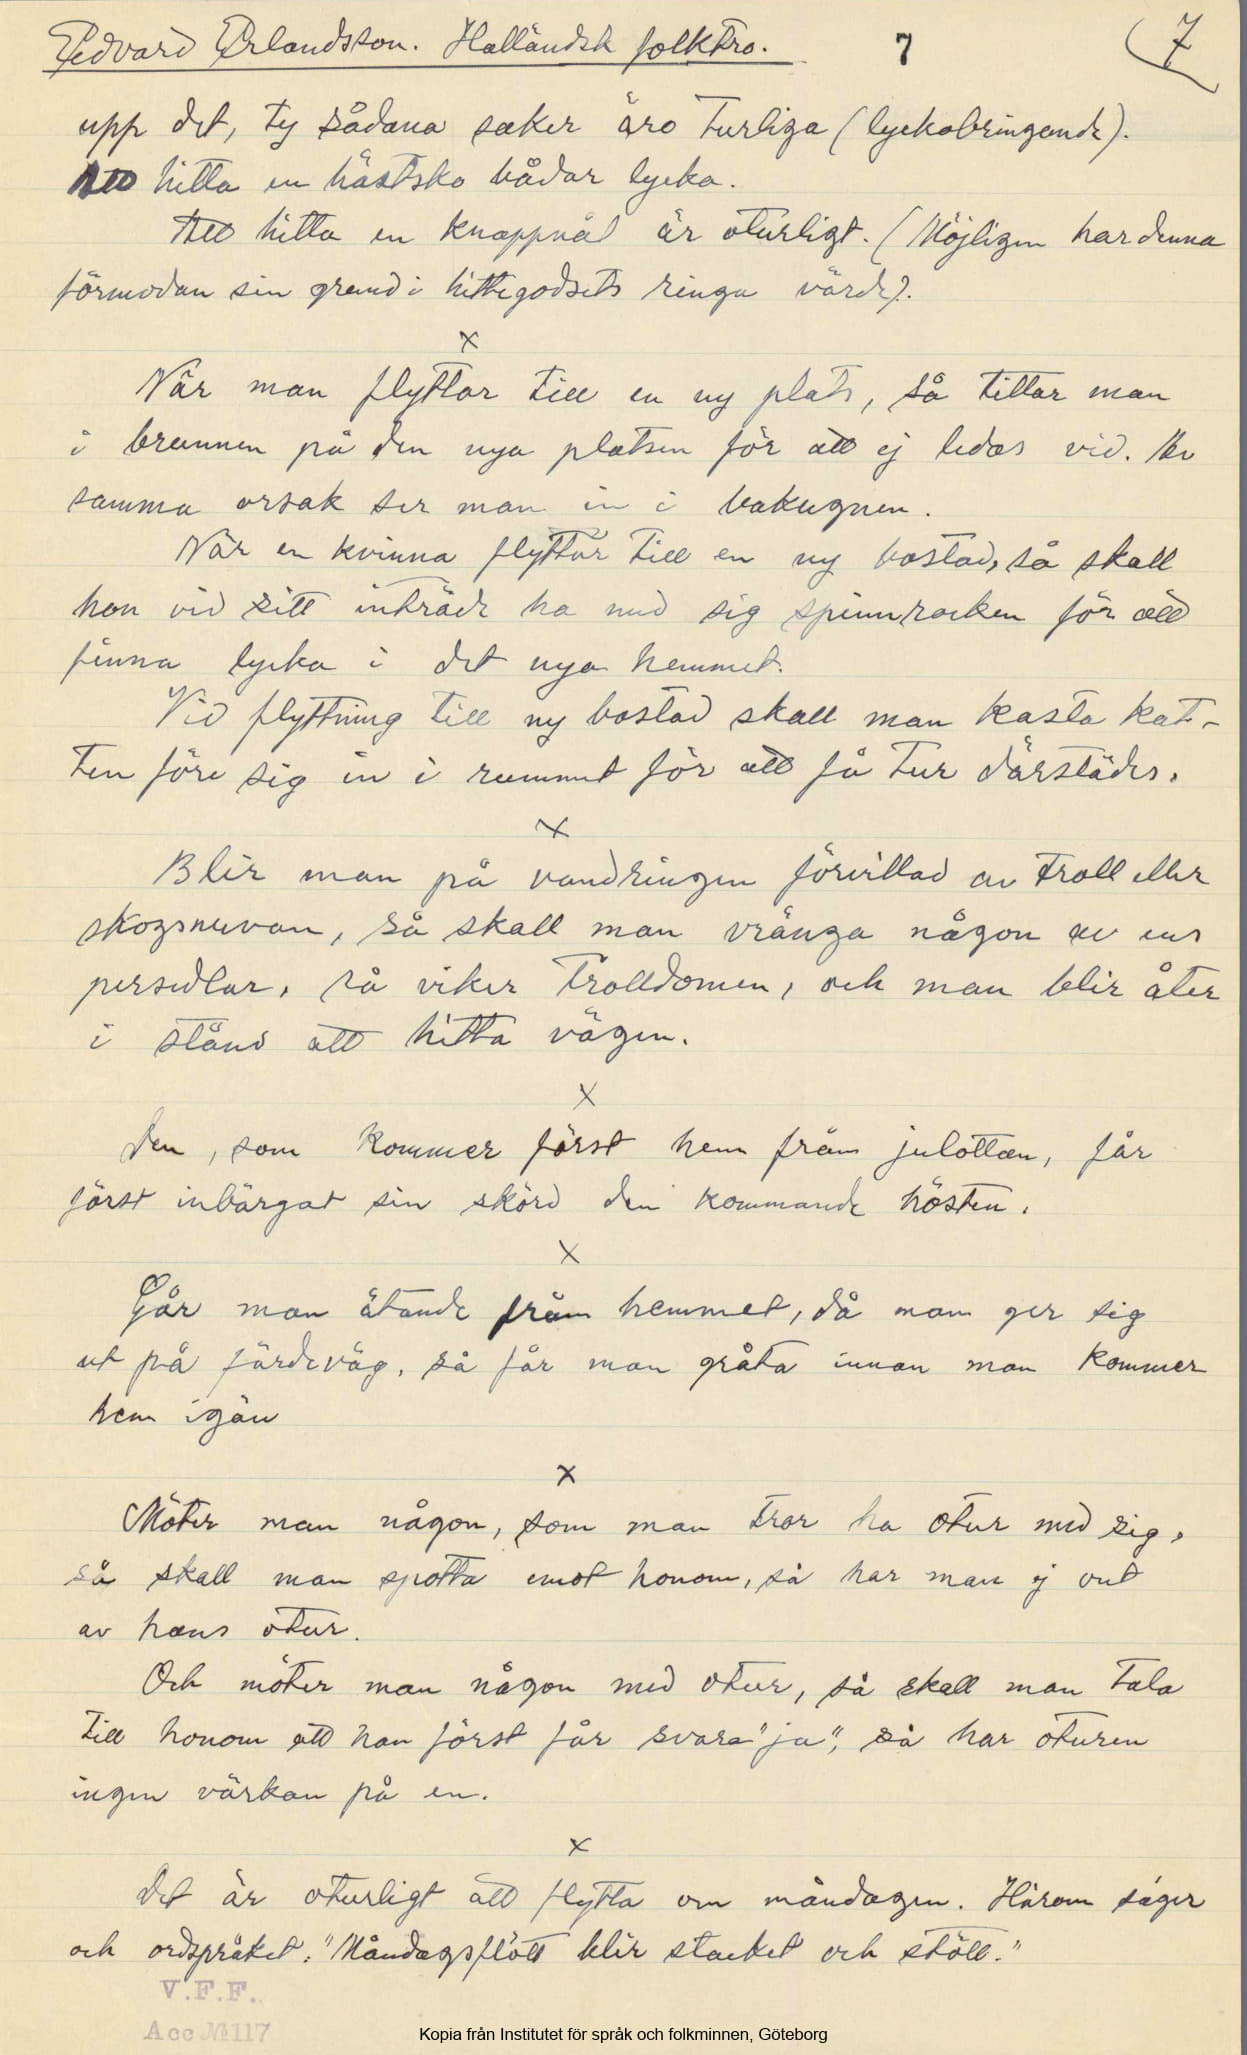 Edvard Erlandsson. Halländsk folktro. 7 7
upp det, ty sådana saker äro turliga (lyckobringande).
Att hitta en hästsko bådar lycka.
Att hitta en knappnål är oturligt. (Möjligen har denna
förmodan sin grund i hittegodsets ringa värde).
x
När man flyttar till en ny plats, så tittar man
i brunnen på den nya platsen för att ej ledas vid. Av
samma orsak ser man in i bakugnen.
När en kvinna flyttar till en ny bostad, så skall
hon vid sitt inträde ha med sig spinnrocken för att
finna lycka i det nya hemmet.
Vid flyttning till ny bostad skall man kasta kat-
ten före sig in i rummet för att få tur därstädes.
x
Blir man på vandringen förvillad av troll eller
skogsnuvan, så skall man vränga någon av ens
persedlar, så viker trolldomen, och man blir åter
i stånd att hitta vägen.
x
Den, som kommer först hem från julottan, får
först inbärgat sin skörd den kommande hösten.
x
Går man ätande från hemmet, då man ger sig
ut på färdeväg, så får man gråta innan man kommer
hem igän
x
Möter man någon, som man tror ha otur med sig,
så skall man spotta emot honom, så har man ej ont
av hans otur.
Och möter man någon med otur, så skall man tala
till honom att han först får svara "ja", så har oturen
ingen värkan på en.
x
Det är oturligt att flytta om måndagen. Härom säger
och ordspråket: "Måndagsflött blir stacket och stött."
V.F.F.
Acc № 117
Kopia från Institutet för språk och folkminnen, Göteborg